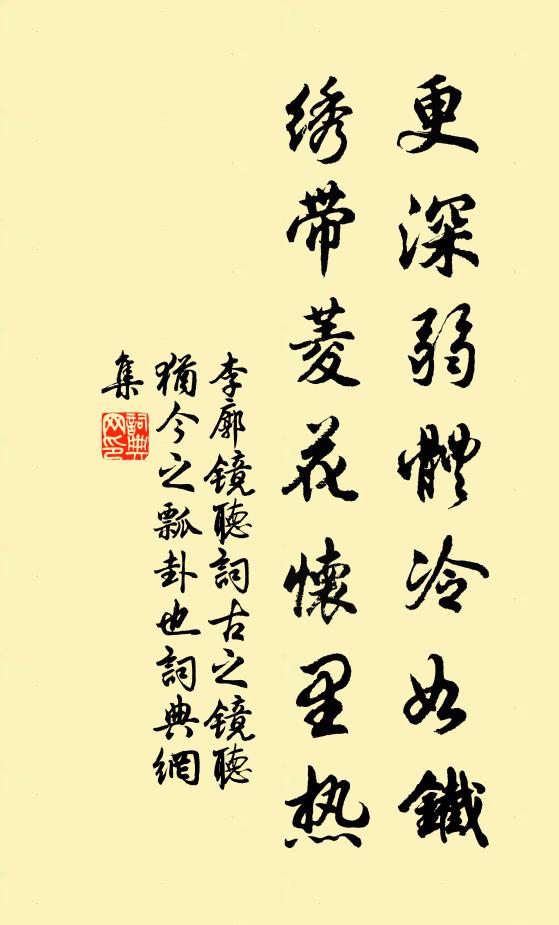 更深弱體冷如鐵
绣带菱花懷里热
李廓鏡聽詞古之鏡聽
猶今之瓢卦也詞典網
集
詞典
网印